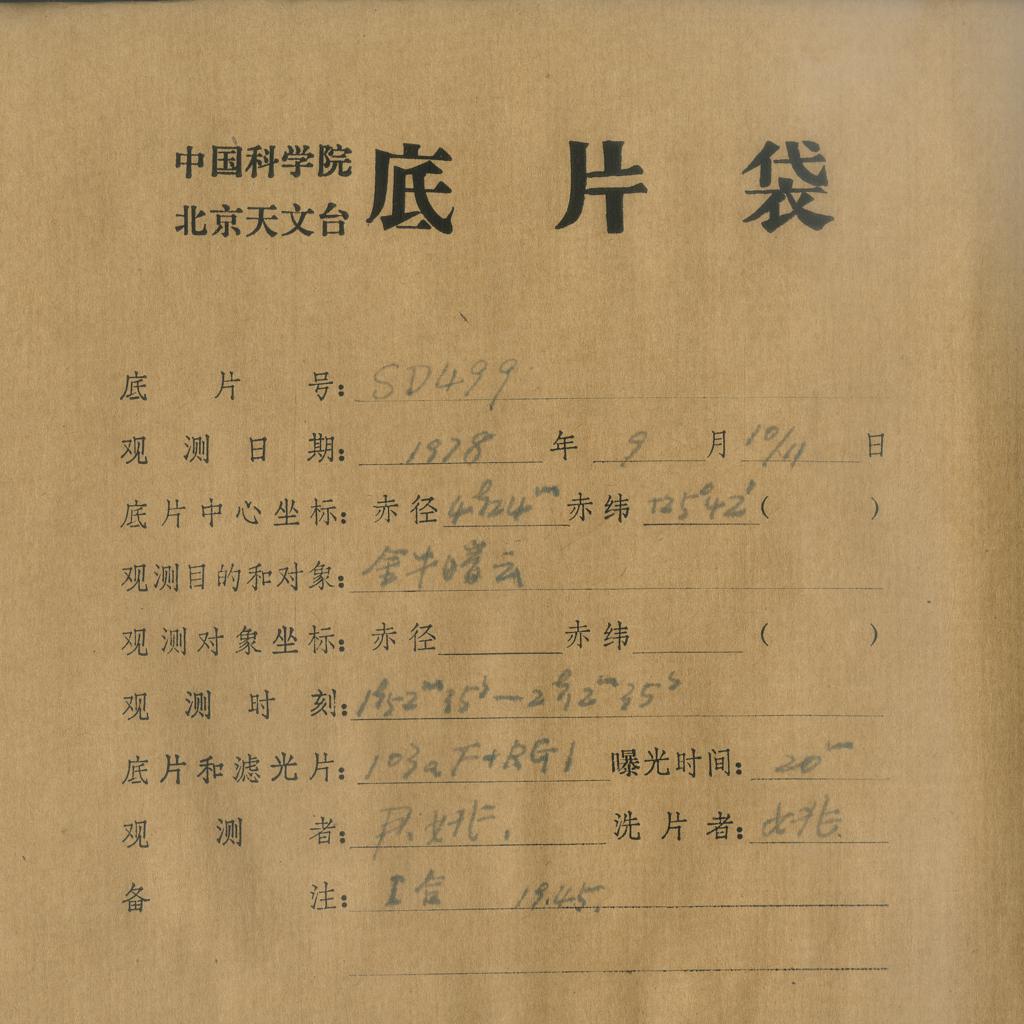 中国科学院
北京天文台
底片袋
底片号: SD499
观测日期: 1978 年 9 月 10/11 日
底片中心坐标: 赤径 4h24m 赤纬 +25°42′ ( )
观测目的和对象: 金牛暗云
观测对象坐标: 赤径 赤纬 ( )
观测时刻: 1h52m35s—2h12m35s
底片和滤光片: 103aF+RG1 曝光时间: 20m
观测者: 洗片者:
备注: I 19.45.